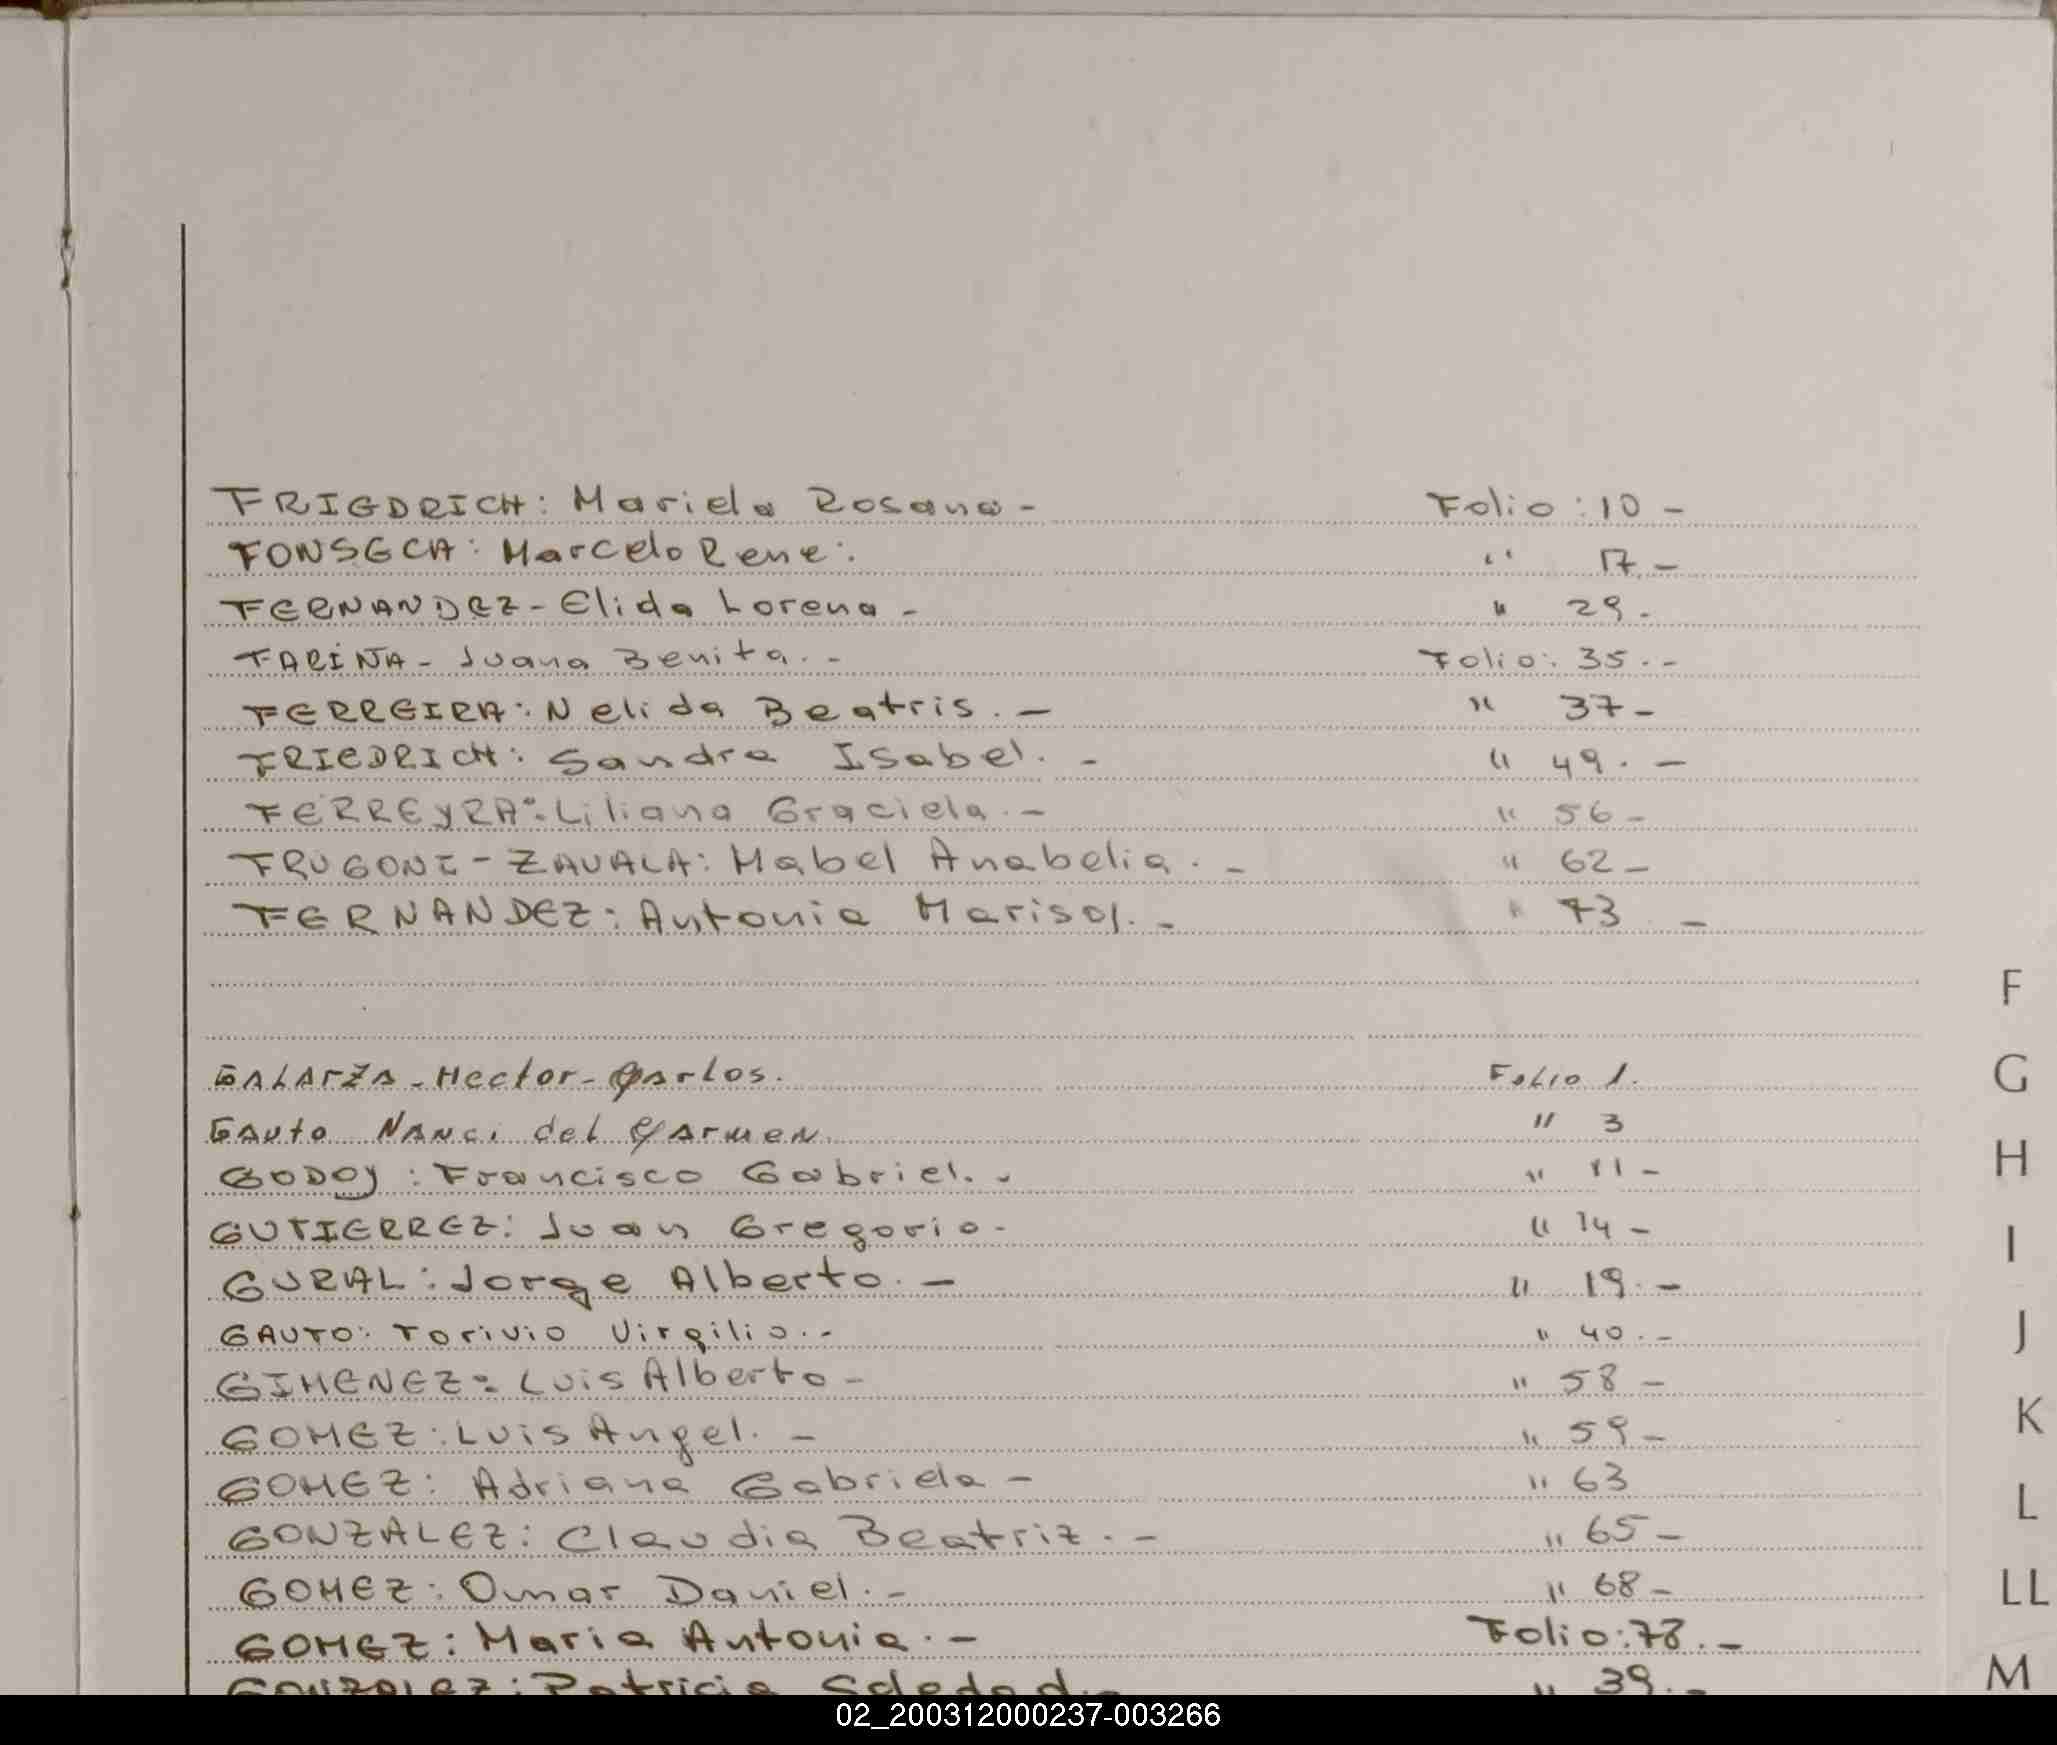 FRIEDRICH: Mariela Rosana - Folio: 10 -
FONSECA: Marcelo Rene: " 17. -
FERNANDEZ - Elida Lorena - " 29.
FARIÑA - Juana Benita. - Folio: 35. -
FERREIRA: Nelida Beatris. - " 37 -
FRIEDRICH: Sandra Isabel. - " 49. -
FERREyRA: Liliana Graciela. - " 56 -
FRUGONI - ZAVALA: Mabel Anabelia. - " 62 -
FERNANDEZ: Antonia Marisol. - " 73 -
F
GALArZA - Hector - Carlos. Folio 1.
G
GAuto Nanci del Carmen " 3
GODOy: Francisco Gabriel. - " 11 -
H
GUTIERREZ: Juan Gregorio - " 14 -
I
GURAL: Jorge Alberto. - " 19. -
GAUTO: Torivio Virgilio. - " 40. -
J
GIMENEZ: Luis Alberto - " 58 -
GOMEZ: Luis Angel. - " 59 -
K
GOMEZ: Adriana Gabriela - " 63
L
GONZALEZ: Claudia Beatriz. - " 65 -
GOMEZ: Omar Daniel. - " 68 -
LL
GOMEZ: Maria Antonia. - Folio: 78. -
GONZALEZ: Patricia Soledad. - " 39. -
M
02_200312000237-003266